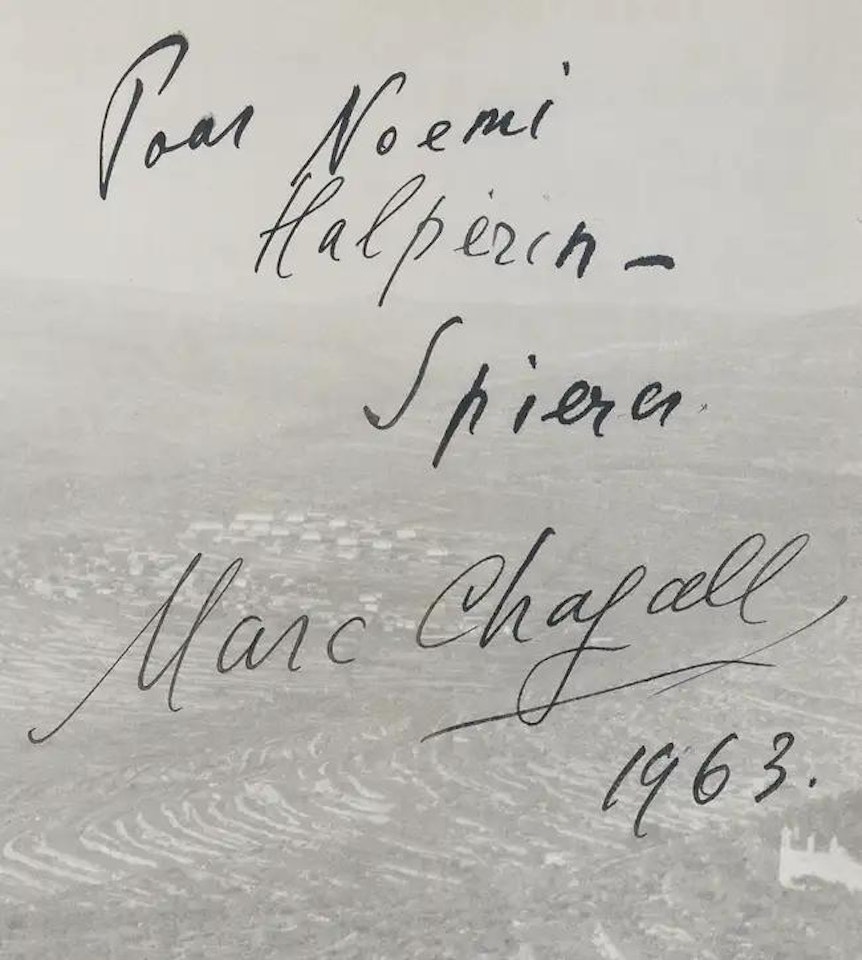 Pour Noemi
Halpérin –
Spiera
Marc Chagall
1963.